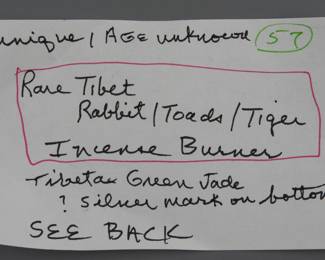 unique / AGE unknown 57
Rare Tibet
Rabbit / Toads / Tiger
Incense Burner
Tibetan Green Jade
? Silver mark on bottom
SEE BACK